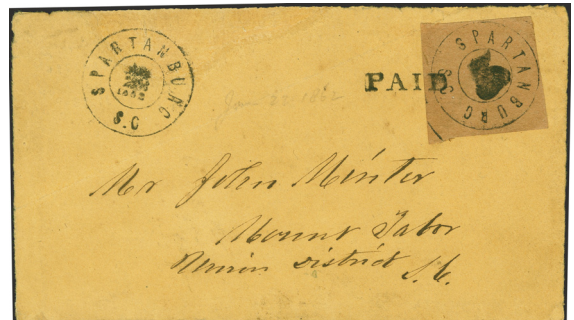 SPARTANBURG
S.C
PAID
SPARTANBURG
Jan 1862
Mr John Minter
Mount Tabor
Union District S.C.